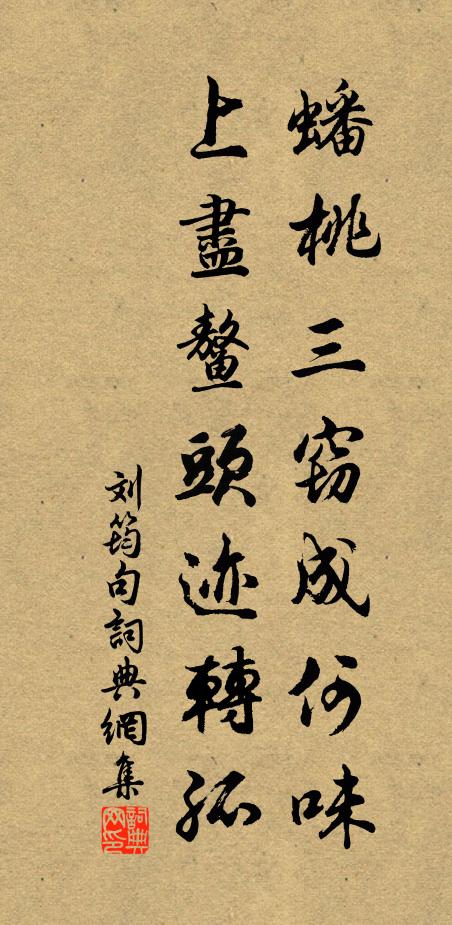 蟠桃三窃成何味
上盡鼇頭迹轉孤
刘筠句詞典網集
詞典网印